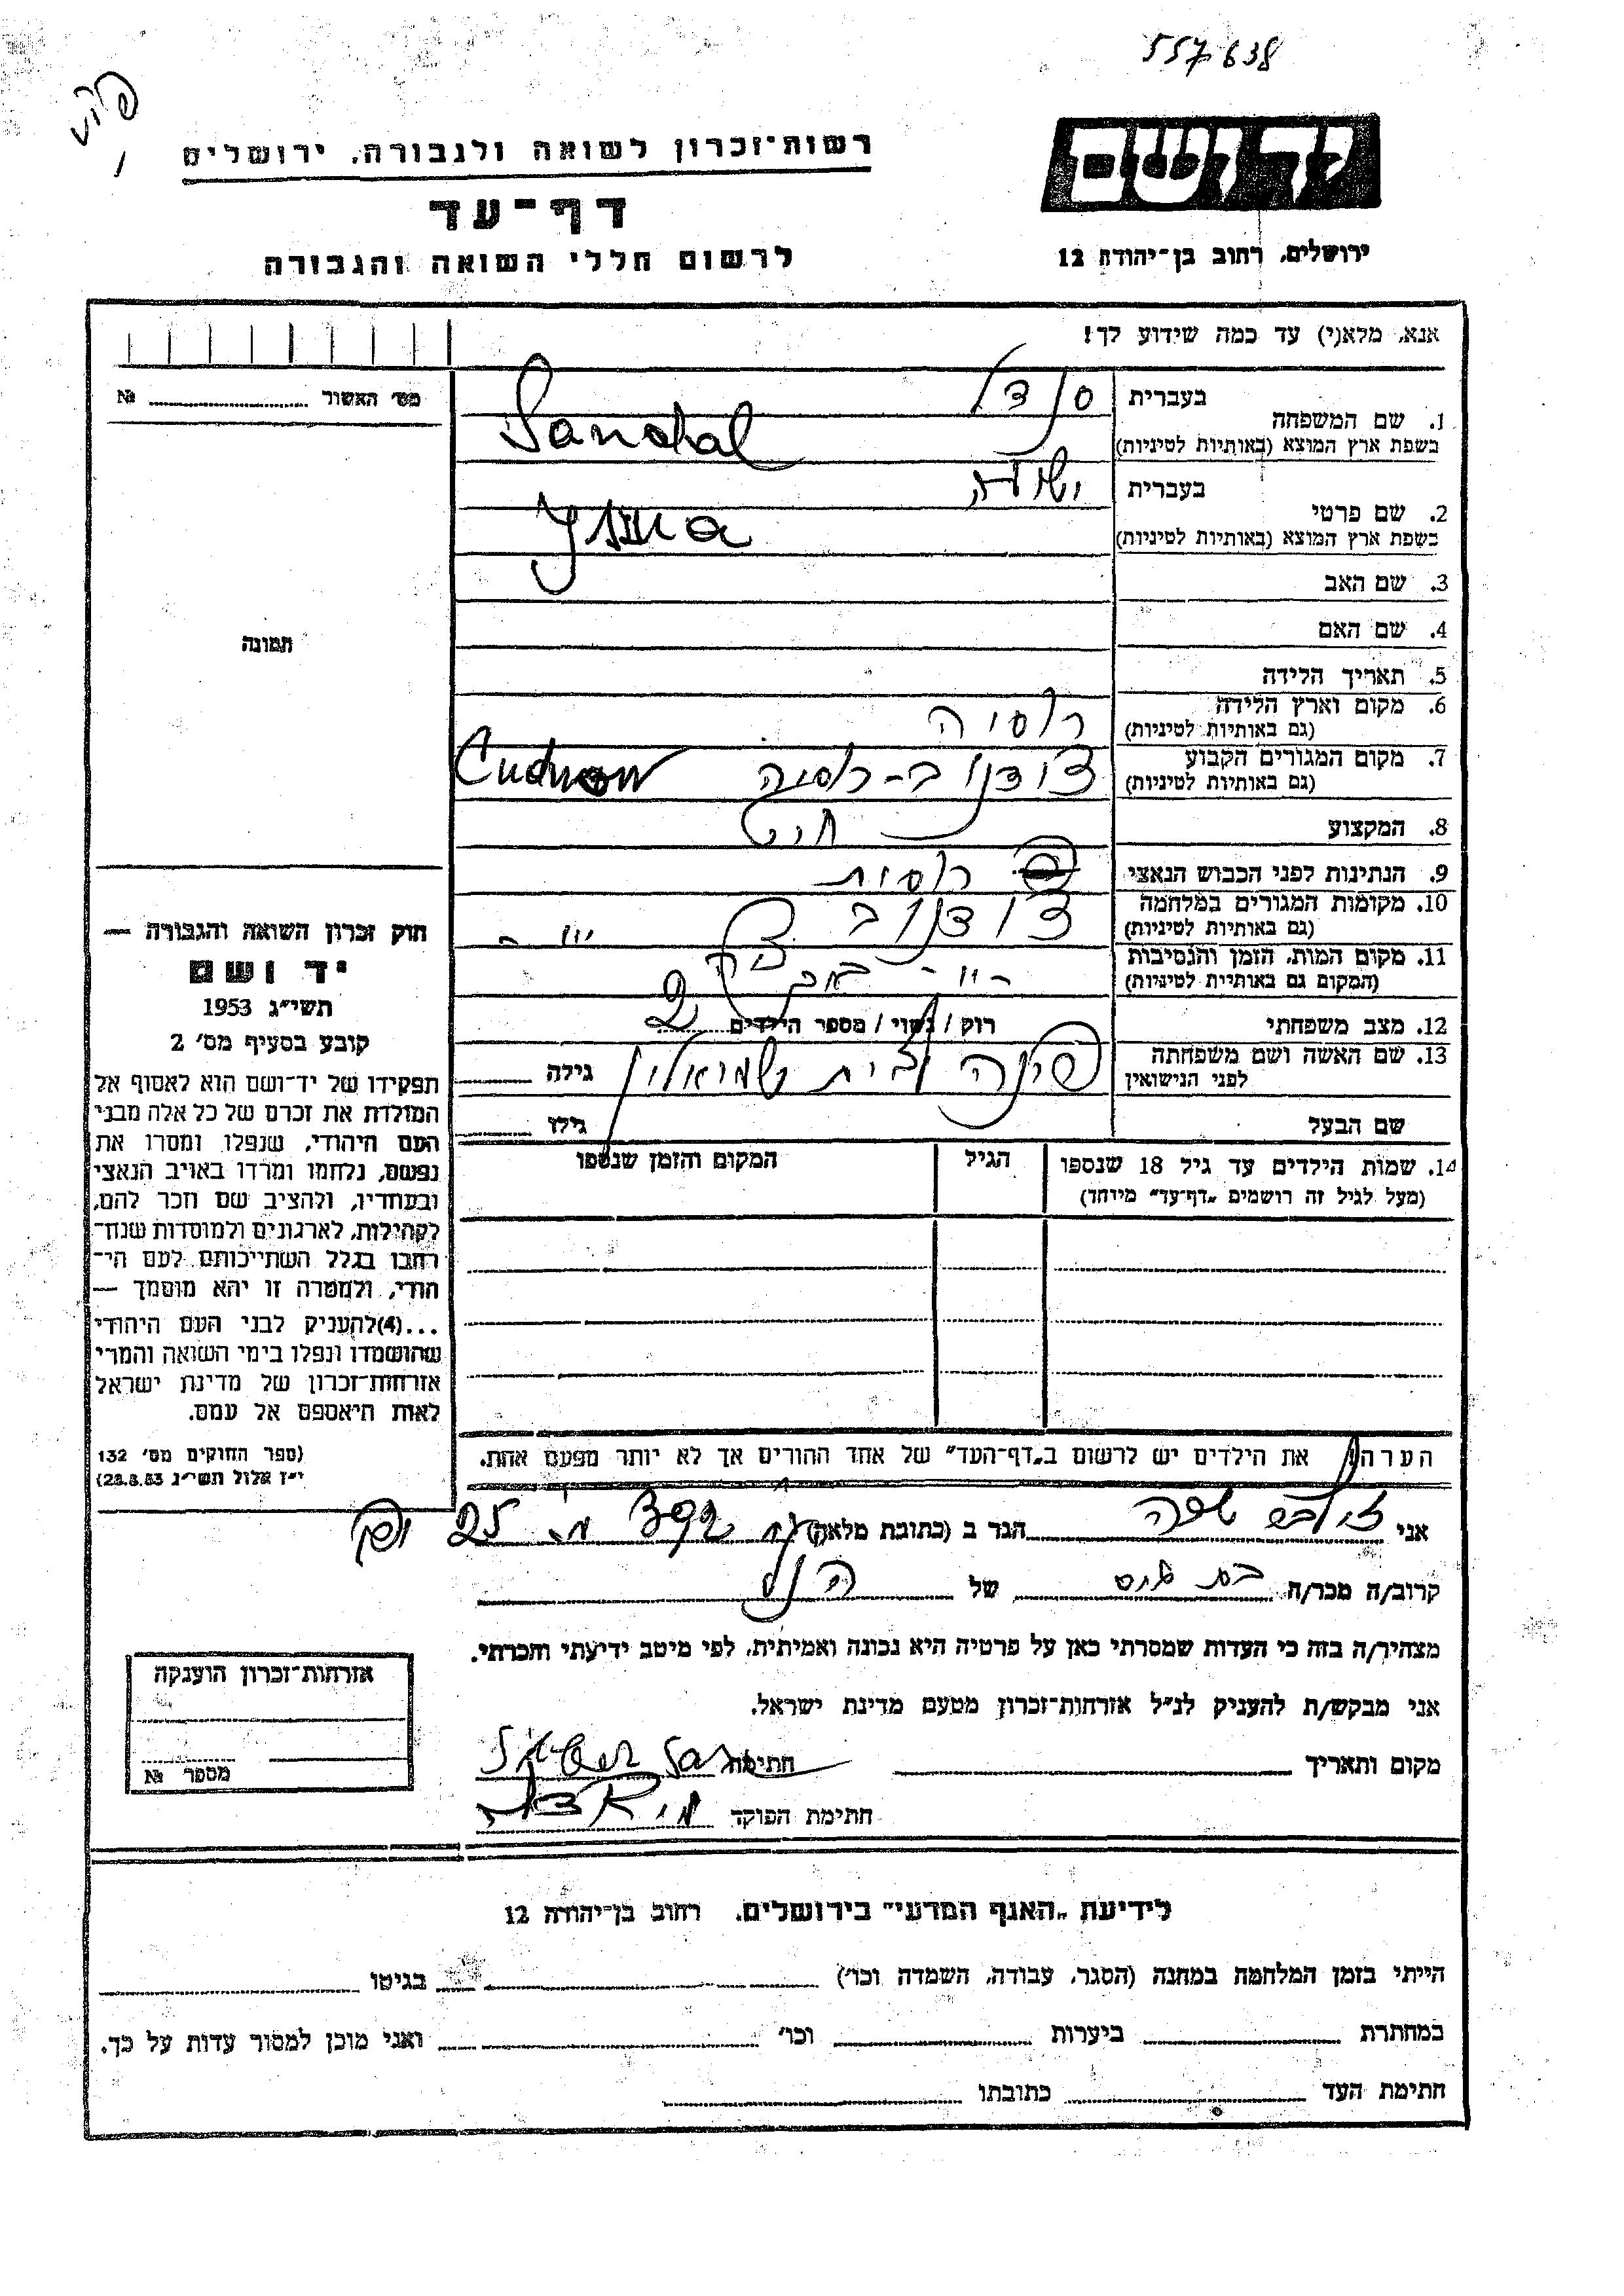 557638
רשות-זכרון לשואה ולגבורה, ירושלים
יד ושם
דף-עד
לרשום חללי השואה והגבורה
ירושלים, רחוב בן-יהודה 12
אנא, מלא(י) עד כמה שידוע לך!
מס' האשור № 
1. שם המשפחה
בעברית סנדל
בשפת ארץ המוצא (באותיות לטיניות) Sandal
2. שם פרטי
בעברית
בשפת ארץ המוצא (באותיות לטיניות)
3. שם האב
4. שם האם
תמונה
5. תאריך הלידה
6. מקום וארץ הלידה רוסיה
(גם באותיות לטיניות)
7. מקום המגורים הקבוע צודנוב - רוסיה Cudnow
(גם באותיות לטיניות)
8. המקצוע חיט
9. הנתינות לפני הכבוש הנאצי רוסית
10. מקומות המגורים במלחמה צודנוב
(גם באותיות לטיניות)
11. מקום המות, הזמן והנסיבות
(המקום גם באותיות לטיניות)
12. מצב משפחתי רוק / נשוי / מספר הילדים 2
13. שם האשה ושם משפחתה
לפני הנישואין
גילה
שם הבעל גילו
14. שמות הילדים עד גיל 18 שנספו
(מעל לגיל זה רושמים "דף-עד" מיוחד)
הגיל
המקום והזמן שנספו
הערה את הילדים יש לרשום ב"דף-העד" של אחד ההורים אך לא יותר מפעם אחת.
חוק זכרון השואה והגבורה —
יד ושם
תשי"ג 1953
קובע בסעיף מס' 2
תפקידו של יד-ושם הוא לאסוף אל
המולדת את זכרם של כל אלה מבני
העם היהודי, שנפלו ומסרו את
נפשם, נלחמו ומרדו באויב הנאצי
ובעוזריו, ולהציב שם וזכר להם,
לקהילות, לארגונים ולמוסדות שנח-
רבו בגלל השתייכותם לעם הי-
הודי, ולמטרה זו יהא מוסמך —
...(4) להעניק לבני העם היהודי
שהושמדו ונפלו בימי השואה והמרי
אזרחות-זכרון של מדינת ישראל
לאות היאספם אל עמם.
(ספר החוקים מס' 132
י"ז אלול תשי"ג 28.8.53)
אני הגר ב (כתובת מלאה)
קרוב/ה מכר/ה של הנ"ל
מצהיר/ה בזה כי העדות שמסרתי כאן על פרטיה היא נכונה ואמיתית, לפי מיטב ידיעתי והכרתי.
אני מבקש/ת להעניק לנ"ל אזרחות-זכרון מטעם מדינת ישראל.
מקום ותאריך חתימה
חתימת הפוקד
אזרחות-זכרון הוענקה
מספר №
לידיעת "האגף המדעי" בירושלים, רחוב בן-יהודה 12
הייתי בזמן המלחמה במחנה (הסגר, עבודה, השמדה וכו') בגיטו
במחתרת ביערות וכו' ואני מוכן למסור עדות על כך.
חתימת העד כתובתו